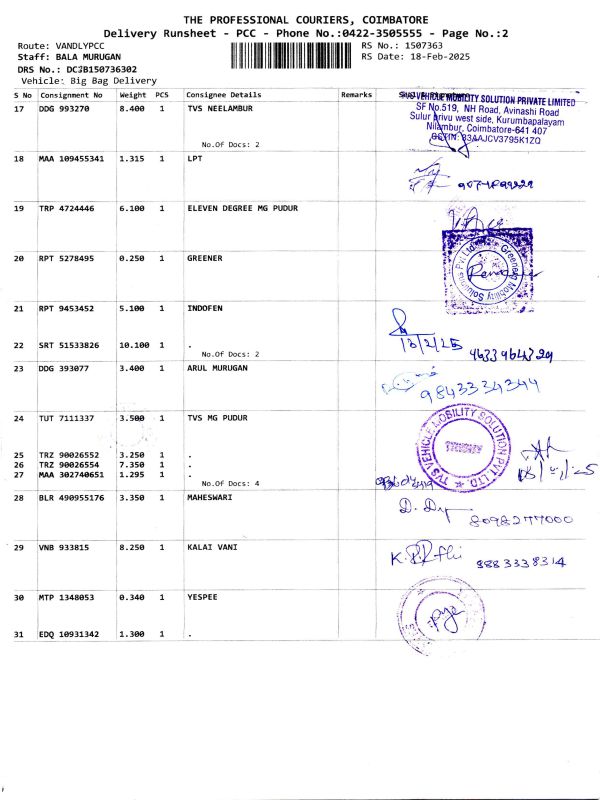 THE PROFESSIONAL COURIERS, COIMBATORE
Delivery Runsheet - PCC - Phone No.:0422-3505555 - Page No.:2
Route: VANDLYPCC
RS No.: 1507363
Staff: BALA MURUGAN
RS Date: 18-Feb-2025
DRS No.: DC2B150736302
Vehicle: Big Bag Delivery
S No Consignment No Weight PCS Consignee Details Remarks
17 DDG 993270 8.400 1 TVS NEELAMBUR
No.Of Docs: 2
TVS VEHICLE MOBILITY SOLUTION PRIVATE LIMITED
SF No.519, NH Road, Avinashi Road
Sulur Privu west side, Kurumbapalayam
Nilambur, Coimbatore-641 407
GSTIN: 33AAJCV3795K1ZQ
18 MAA 109455341 1.315 1 LPT
19 TRP 4724446 6.100 1 ELEVEN DEGREE MG PUDUR
20 RPT 5278495 0.250 1 GREENER
Greenag Mobility Solutions Pvt. Ltd
21 RPT 9453452 5.100 1 INDOFEN
22 SRT 51533826 10.100 1 .
No.Of Docs: 2
18/2/25
9633964329
23 DDG 393077 3.400 1 ARUL MURUGAN
9843334344
24 TUT 7111337 3.500 1 TVS MG PUDUR
TVS VEHICLE MOBILITY SOLUTION PVT LTD
25 TRZ 90026552 3.250 1 .
26 TRZ 90026554 7.350 1 .
27 MAA 302740651 1.295 1 .
No.Of Docs: 4
28 BLR 490955176 3.350 1 MAHESWARI
8098277000
29 VNB 933815 8.250 1 KALAI VANI
8883338314
30 MTP 1348053 0.340 1 YESPEE
31 EDQ 10931342 1.300 1 .